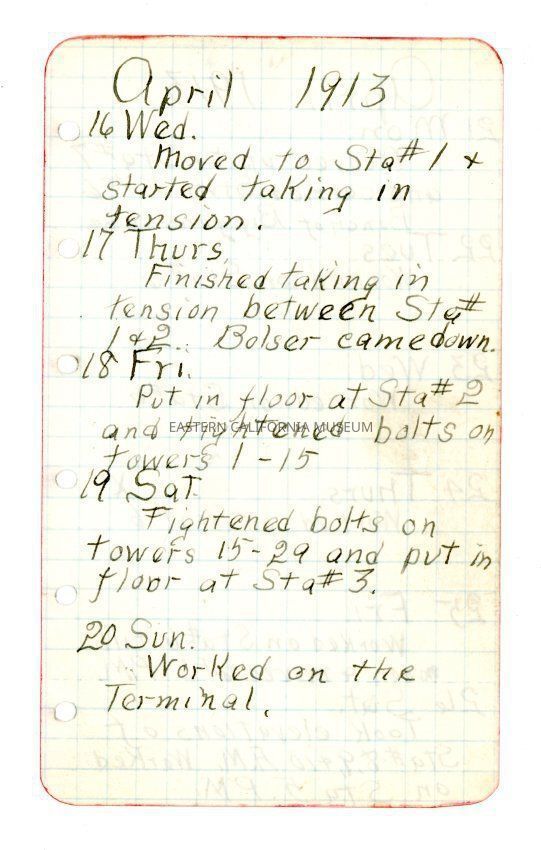 April 1913
16 Wed.
Moved to Sta# 1 &
started taking in
tension.
17 Thurs.
Finished taking in
tension between Sta#
1 & 2. Bolser came down.
18 Fri.
Put in floor at Sta# 2
EASTERN CALIFORNIA MUSEUM
and tightened bolts on
towers 1-15
19 Sat.
Tightened bolts on
towers 15-29 and put in
floor at Sta# 3.
20 Sun.
Worked on the
Terminal.